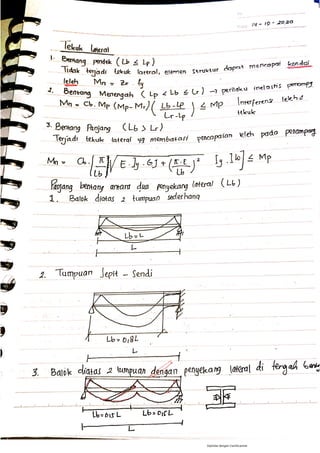 14 - 10 - 2020
Tekuk lateral
1. Bentang pendek ( Lb ≤ Lp )
Tidak terjadi tekuk lateral, elemen struktur dapat mencapai kondisi
leleh Mn = Zx fy
2. Bentang Menengah ( Lp < Lb ≤ Lr ) → perilaku inelastis penampang
Mn = Cb. Mp (Mp- Mr) ( Lb - Lp / Lr - Lp ) ≤ Mp Interferensi leleh &
tekuk
3. Bentang Panjang ( Lb > Lr )
Terjadi tekuk lateral yg membatasi pencapaian leleh pada penampang
Mn = Cb. [ π / Lb √ E . Iy . GJ + ( π.E / Lb )² Iy . Iw ] ≤ Mp
Panjang bentang antara dua pengekang lateral ( Lb )
1. Balok diatas 2 tumpuan sederhana
Lb = L
L
2. Tumpuan Jepit - Sendi
Lb = 0,8L
L
3. Balok diatas 2 tumpuan dengan pengekang lateral di tengah
Lb = 0,5 L Lb = 0,5 L
L